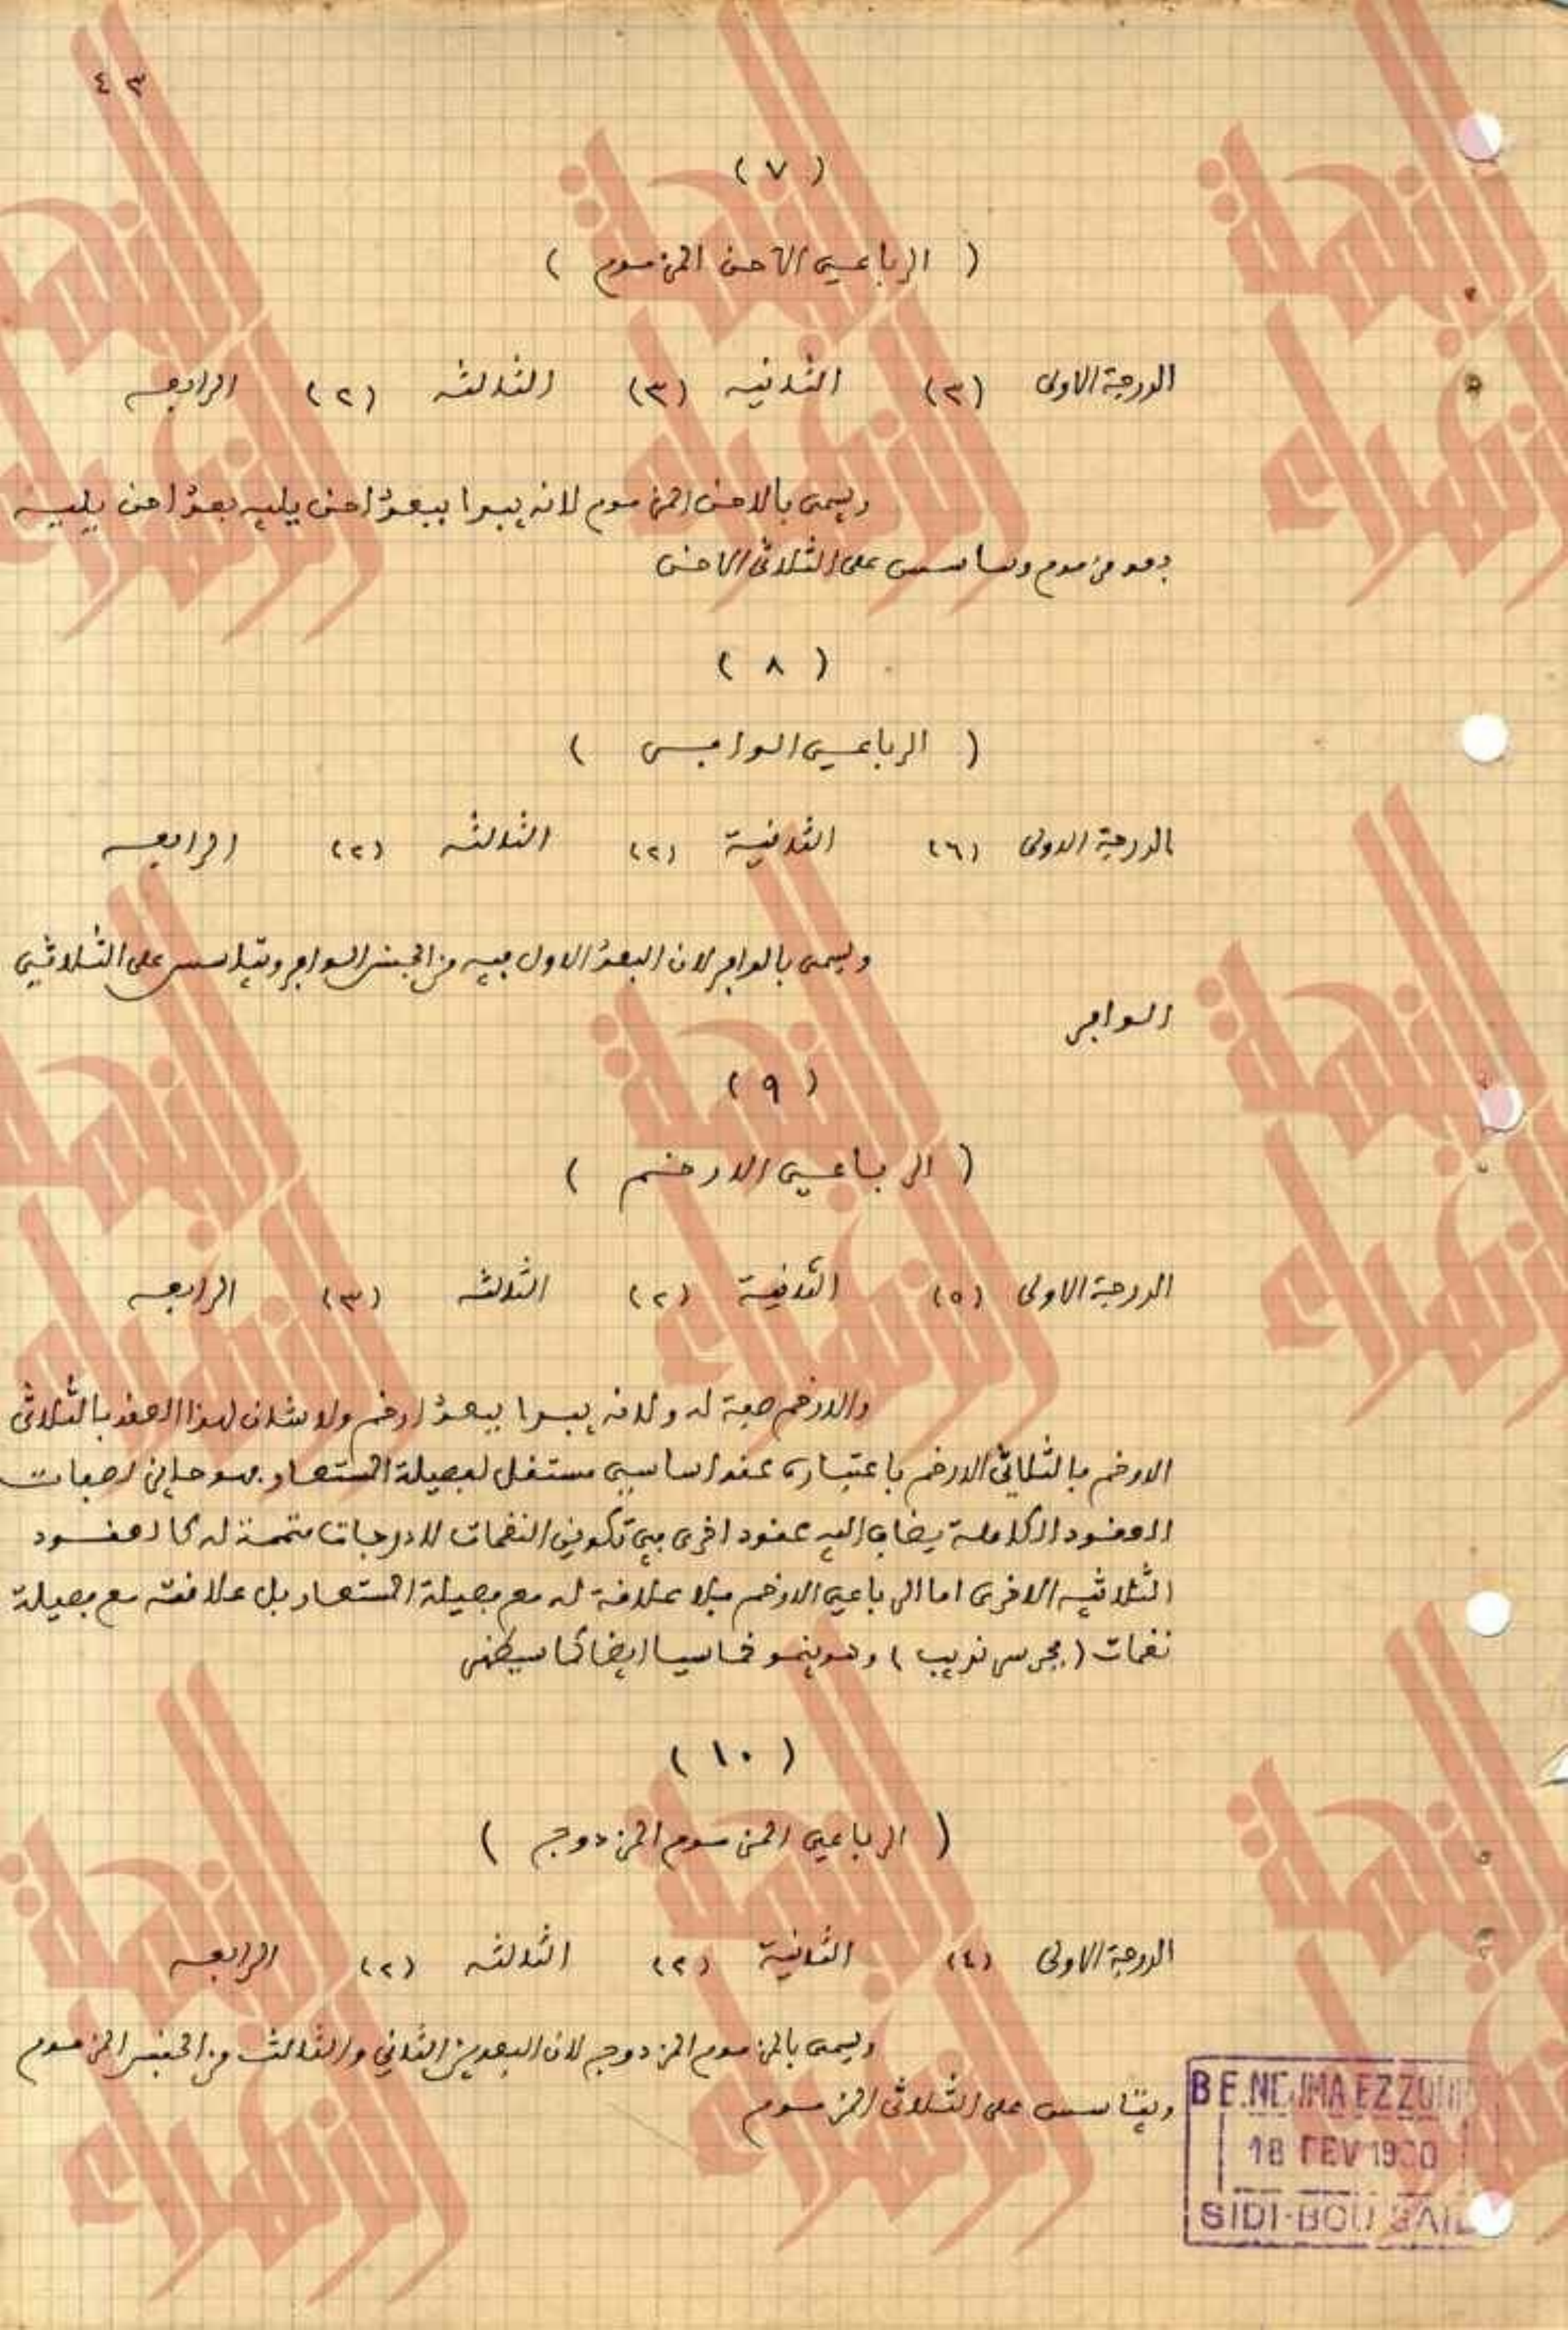 ٤٣
( ٧ )
( الرباعي الاحن المزموم )
الدرجة الاولى (٣) الثانيه (٣) الثالثه (٢) الرابعه
ويسمى بالاحن المزموم لانه يبدا ببعد احن يليه بعد احن يليه
بعد مزموم ويتاسس على الثلاثي الاحن
( ٨ )
( الرباعي الوافر )
الدرجة الاولى (٦) الثانية (٢) الثالثه (٢) الرابعه
ويسمى بالوافر لان البعد الاول فيه من الجنس الوافر ويتاسس على الثلاثي
الوافر
( ٩ )
( الرباعي الارخم )
الدرجة الاولى (٥) الثانية (٢) الثالثه (٣) الرابعه
والارخم صفة له ولانه يبدا ببعد ارخم ولا شان لهذا العقد بالثلاثي
الارخم فالثلاثي الارخم باعتباره عقد اساسي مستقل لفصيلة المستعار فهو حائز لصفات
العقود الكاملة يضاف اليه عقود اخرى في تكوين النغمات للدرجات متممة له كالعقود
الثلاثيه الاخرى اما الرباعي الارخم فلا علاقة له مع فصيلة المستعار بل علاقته مع فصيلة
نغمات ( مجرس غريب ) وهو ينمو خماسيا ايضا كما سيظهر
( ١٠ )
( الرباعي المزموم المزدوج )
الدرجة الاولى (٤) الثانية (٢) الثالثه (٢) الرابعه
ويسمى بالمزموم المزدوج لان البعدين الثاني والثالث من الجنس المزموم
ويتاسس على الثلاثي المزموم
BE.NEJMA EZZOHRA
18 FEV 19
SIDI-BOU SAID
النجمة الزهراء